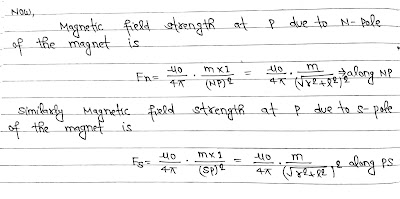 Now,
Magnetic field strength at P due to N-pole
of the magnet is
Fn = μ0/4π · m×1/(NP)² = μ0/4π · m/(√r²+l²)² → along NP
Similarly Magnetic field strength at P due to s-pole
of the magnet is
Fs = μ0/4π · m×1/(SP)² = μ0/4π · m/(√r²+l²)² along PS